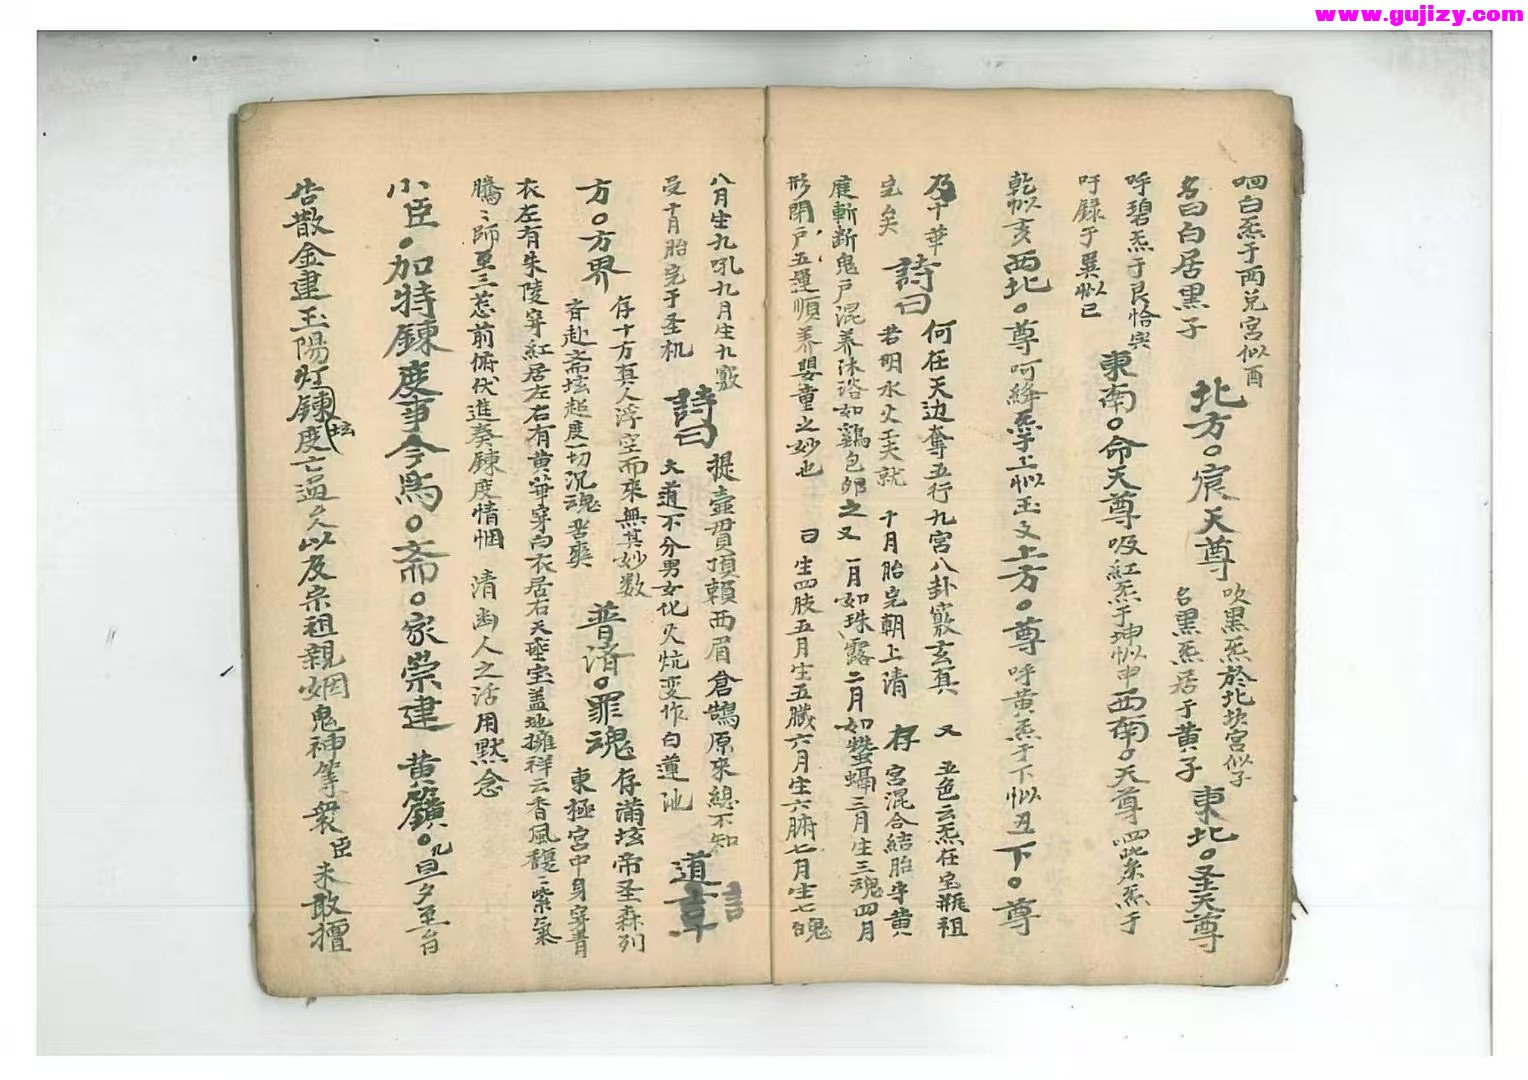 www.gujizy.com
呬白炁于西兑宮似酉
名曰白居黒子
北方。宸天尊
吹黒炁於北坎宮似子
名黒炁居于黄子
東北。圣天尊
呼碧炁于艮恰與
吁録于巽似巳
東南。命天尊
吸紅炁于坤似申
西南。天尊
四紫炁于
乾似亥
西北。尊
呵絳炁于上似玉文
上方。尊
呼黄炁于下似丑
下。尊
及十華
完矣
詩曰
何在天边奪五行九宮八卦竅玄真
若明水火工夫就
十月胎完朝上清
又
存
五色云炁在宝瓶祖
宮混合結胎半黄
庭斬断鬼戸混养沐浴如鷄包卵之又
一月如珠露二月如螢蝠三月生三魂四月
形閉戸五運順养嬰童之妙也
曰生四肢五月生五臓六月生六腑七月生七魄
八月生九吼九月生九竅
受十月胎完于圣机
詩曰
提壺貫頂頼西眉倉鵠原來緫不知
大道不分男女化火炕变作白蓮池
道言
章
方。方界
存十方真人浮空而來無其妙数
斉赴斋坛超度一切沉魂苦爽
普济。罪魂
存满坛帝圣森列
東極宮中身穿青
衣左有朱陵穿紅居左右有黄華穿白衣居右天垂宝盖地擁祥云香風馥〻紫氣
騰〻師至三惹前俯伏進奏錬度情悃
清幽人之活用默念
小臣。加特錬度事今為。斋。家崇建
黄籙。凡旦夕至台
告散金建玉陽灯錬坛度亡过久以及宗祖親姻鬼神等衆臣未敢擅